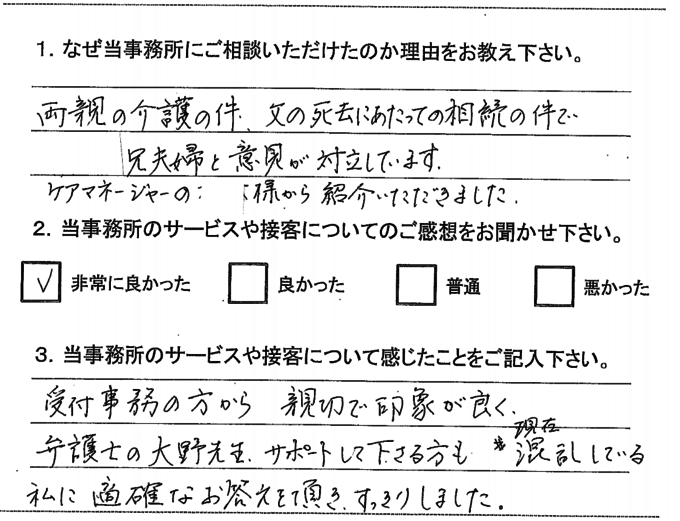 1. なぜ当事務所にご相談いただけたのか理由をお教え下さい。
両親の介護の件、父の死去にあたっての相続の件で
兄夫婦と意見が対立しています。
ケアマネージャーの 様から紹介いただきました。
2. 当事務所のサービスや接客についてのご感想をお聞かせ下さい。
✓ 非常に良かった 良かった 普通 悪かった
3. 当事務所のサービスや接客について感じたことをご記入下さい。
受付事務の方から 親切で印象が良く、
現在
弁護士の大野先生、サポートして下さる方も 混乱している
私に適確なお答えを頂き、すっきりしました。